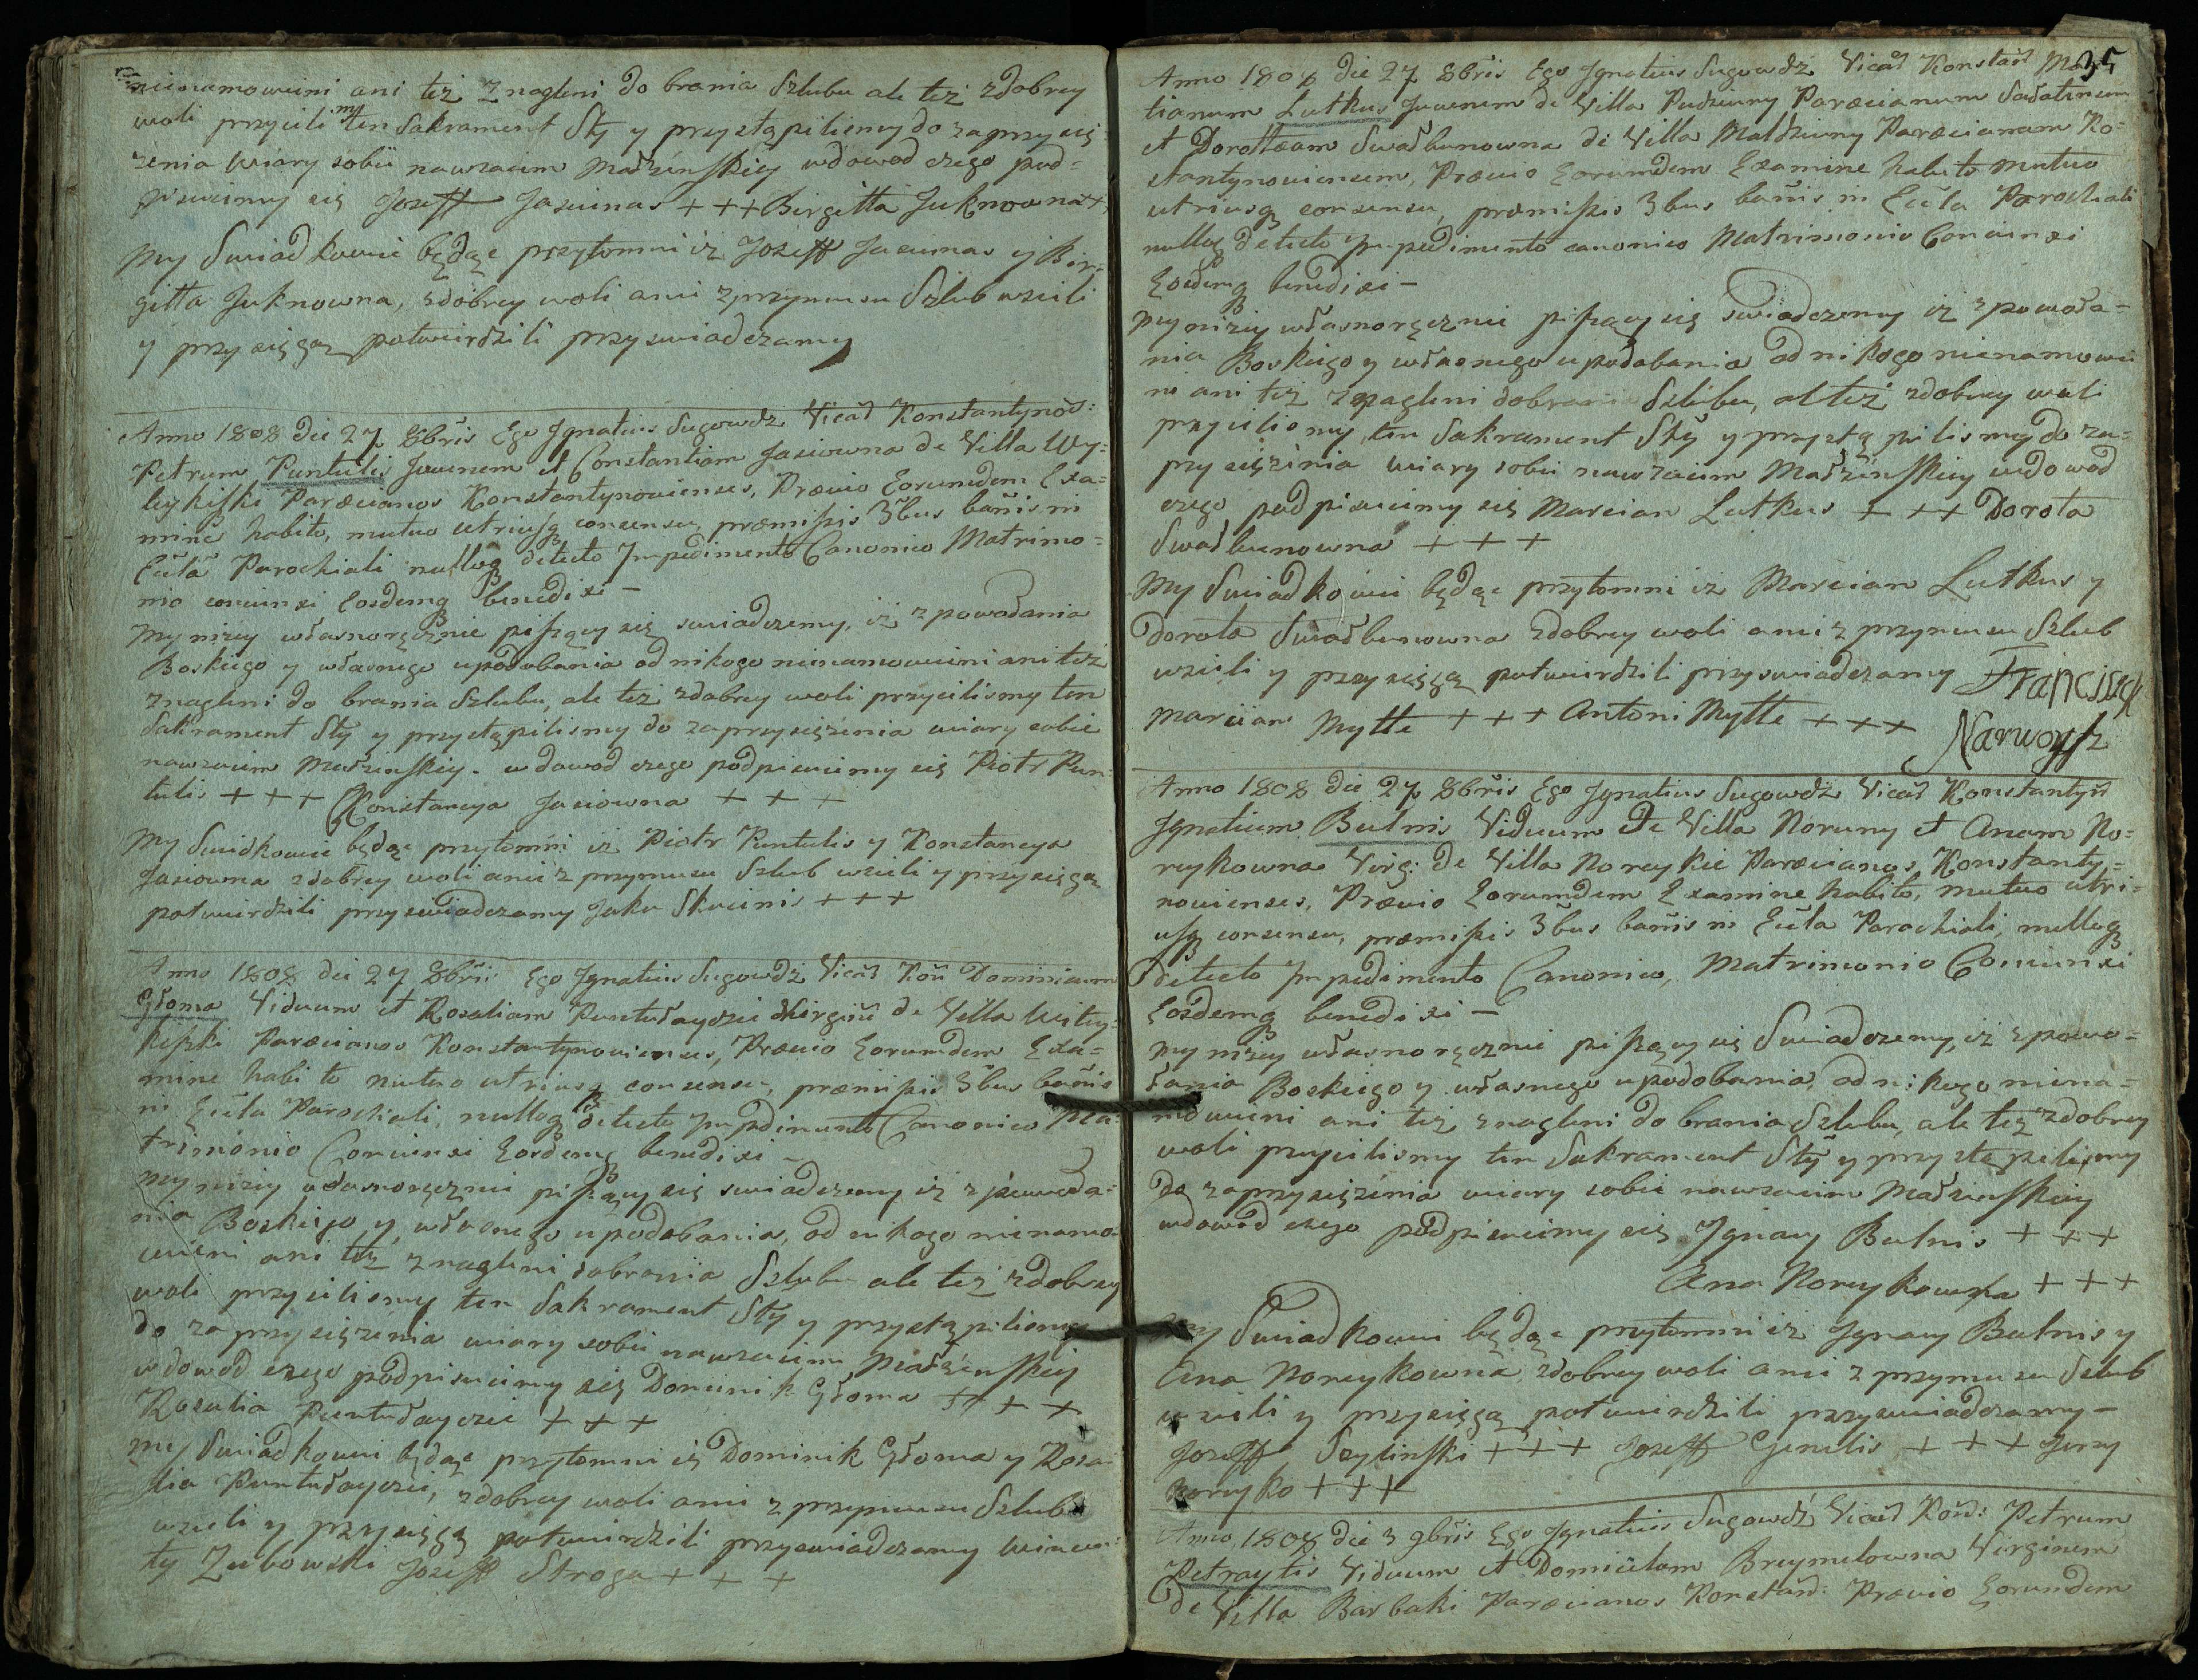 nienamowieni ani też znagleni do brania Szlubu ale też zdobrey
woli przyieli my ten Sakrament Sty y przystąpilismy do zaprzysię-
zenia wiary sobie nawzaiem Małżenskiey wdowod czego pod-
pisuiemy się Jozeff Jasiunas +++ Birgitta Juknowna ++
My Swiadkowie będąc przytomni iż Jozeff Jasiunas y Bir-
gitta Juknowna, zdobrey woli ani z przymusu Szlub wzieli
y przysięgą potwierdzili przyswiadczamy
Anno 1808 die 27 8bris Ego Ignatius Sugowdz Vicař Konstantynov:
Petrum Puntulis Juvenem et Constantiam Jasiowna de Villa Wy-
Paræcianos Konstantynovienses, Prævio Eorumdem Exa=
mine habito, mutuo utriusq consensu, præmissis 3bus bañis in
Eccla Parochiali nullog detecto Impedimento Canonico Matrimo=
nio conjunxi Eosdemq benedixi —
My niżey własnoręcznie piszący się swiadczemy, iż z powołania
Boskiego y własnego upodobania od nikogo nienamowieni ani też
znagleni do brania Szlubu, ale też zdobrey woli przyielismy ten
Sakrament Sty y przystąpilismy do zaprzysięzenia wiary sobie
nawzaiem Małżenskiey. w dowod czego podpisuiemy się Piotr Pun-
tulis +++ Konstancya Jasiowna +++
My Swidkowie będąc przytomni iż Piotr Puntulis y Konstancya
Jasiowna zdobrey woli ani z przymusu Szlub wzieli y przysięgą
potwierdzili przyswiadczamy Jakub +++
Anno 1808 die 27 8bris Ego Ignatius Sugowdz Vicař Koñ Dominicum
Głoma Viduum et Rosaliam Puntułaycie Virginē de Villa
Paræcianos Konstantynovienses, Prævio Eorumdem Exa=
mine habito mutuo utriusq consensu, præmissis 3bus bañis
in Eccla Parochiali, nulloq detecto Impedimento Canonico Ma-
trimonio Conjunxi Eosdemq benedixi —
My niżey własnoręcznie piszący się swiadczemy iż z powoła-
nia Boskiego y własnego upodobania, od nikogo nienamo-
wieni ani też znagleni dobrania Szlubu ale też zdobrey
woli przyielismy ten Sakrament Sty y przystąpilismy
do zaprzysięzenia wiary sobie nawzaiem Małżenskiey
w dowod czego podpisuiemy się Dominik Głoma +++
Rozalia Puntułaycie +++
My Swiadkowie będąc przytomni iż Dominik Głoma y Roza-
lia Puntułaycie, zdobrey woli ani z przymusu Szlub
wzieli y przysięgą potwierdzili przyswiadczamy Wincen-
ty Zubowski Jozeff Stroga +++
35
Anno 1808 die 27 8bris Ego Ignatius Sugowdz Vicař Konstañ Mar-
tianum Lutkus Juvenem de Villa Pudziuny Paræcianum
et Dorotheam Swadbunowna de Villa Maldziuny Paræcianam Ko-
stantynoviensem, Prævio Eorumdem Examine habito mutuo
utriusq consensu, præmissis 3bus bañis in Eccla Parochiali
nulloq detecto Impedimento canonico Matrimonio Conjunxi
Eosdemq benedixi —
My niżey własnoręcznie piszący się swiadczemy iż z powoła-
nia Boskiego y własnego upodobania od nikogo nienamowie
ni ani też znagleni dobrania Szlubu, al też zdobrey woli
przyielismy, ten Sakrament Sty y przystąpilismy do za-
przysięzinia wiary sobie nawzaiem Małżenskiey wdowod
czego podpisuiemy się Marcian Lutkus +++ Dorota
Swadbunowna +++
My Swiadkowie będąc przytomni iż Marcian Lutkus y
Dorota Swadbunowna zdobrey woli ani z przymusu Szlub
wzieli y przysięgą potwierdzili przyswiadczamy Franciszek
Marcian Mytte +++ Antoni Mytte +++ Narwoysz
Anno 1808 die 27 8bris Ego Ignatius Sugowdz Vicař Konstantyñ
Ignatium Butnis Viduum de Villa Noruny et Anam No-
reykowna Virg: de Villa Noreykie Paræcianos, Konstanty-
novienses, Prævio Eorumdem Examine habito, mutuo utri-
usq consensu, præmissis 3bus bañis in Eccla Parochiali, nulloq
detecto Impedimento Canonico, Matrimonio Conjunxi
Eosdemq benedixi —
My niżey własnoręcznie piszący się Swiadczemy, iż z powo-
łania Boskiego y własnego upodobania, od nikogo niena-
mowieni ani też znagleni do brania Szlubu, ale też zdobrey
woli przyielismy ten Sakrament Sty y przystąpilismy
do zaprzysięzinia wiary sobie nawzaiem Małżenskiey
wdowod czego podpisuiemy się Ignacy Butnis +++
Ana Noreykowna +++
My Swiadkowie będąc przytomni iż Ignacy Butnis y
Ana Noreykowna, zdobrey woli ani z przymusu Szlub
wzieli y przysięgą potwierdzili przyswiadczamy —
Jozeff Szylinski +++ Jozeff Genelis +++ Jerzy
Noreyko +++
Anno 1808 die 3 9bris Ego Ignatius Sugowdź Vicař Koñ: Petrum
Petraytis Viduum et Domicelam Breymelowna Virginem
de Villa Barbaki Paræcianos Konstañ: Prævio Eorumdem